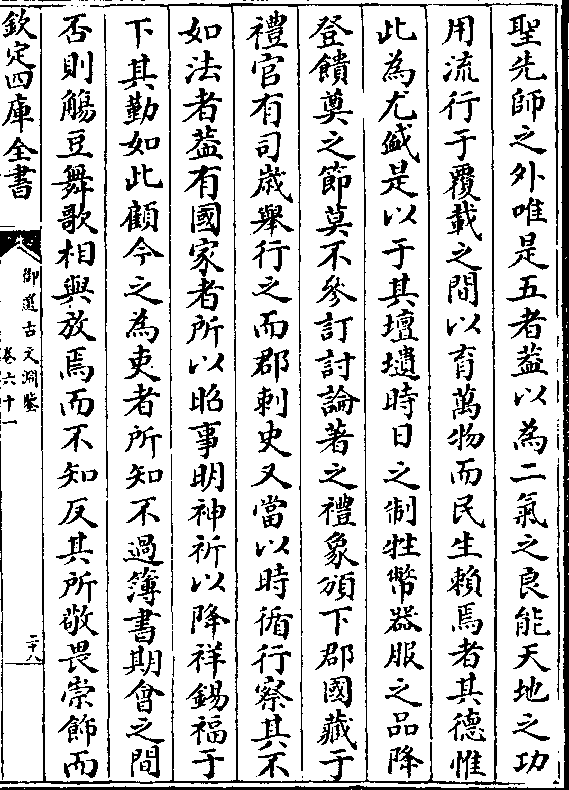 聖先師之外唯是五者蓋以為二氣之良能天地之功
用流行于覆載之間以育萬物而民生賴焉者其德惟
此為尤盛是以于其壇壝時日之制牲幣器服之品降
登饋奠之節莫不參訂討論著之禮象頒下郡國藏于
禮官有司歲舉行之而郡刺史又當以時循行察其不
如法者蓋有國家者所以昭事明神祈以降祥錫福于
下其勤如此顧今之為吏者所知不過簿書期會之間
否則觴豆舞歌相與放焉而不知反其所敬畏崇飾而
欽定四庫全書
御選古文淵鑒
卷六十一
二十八